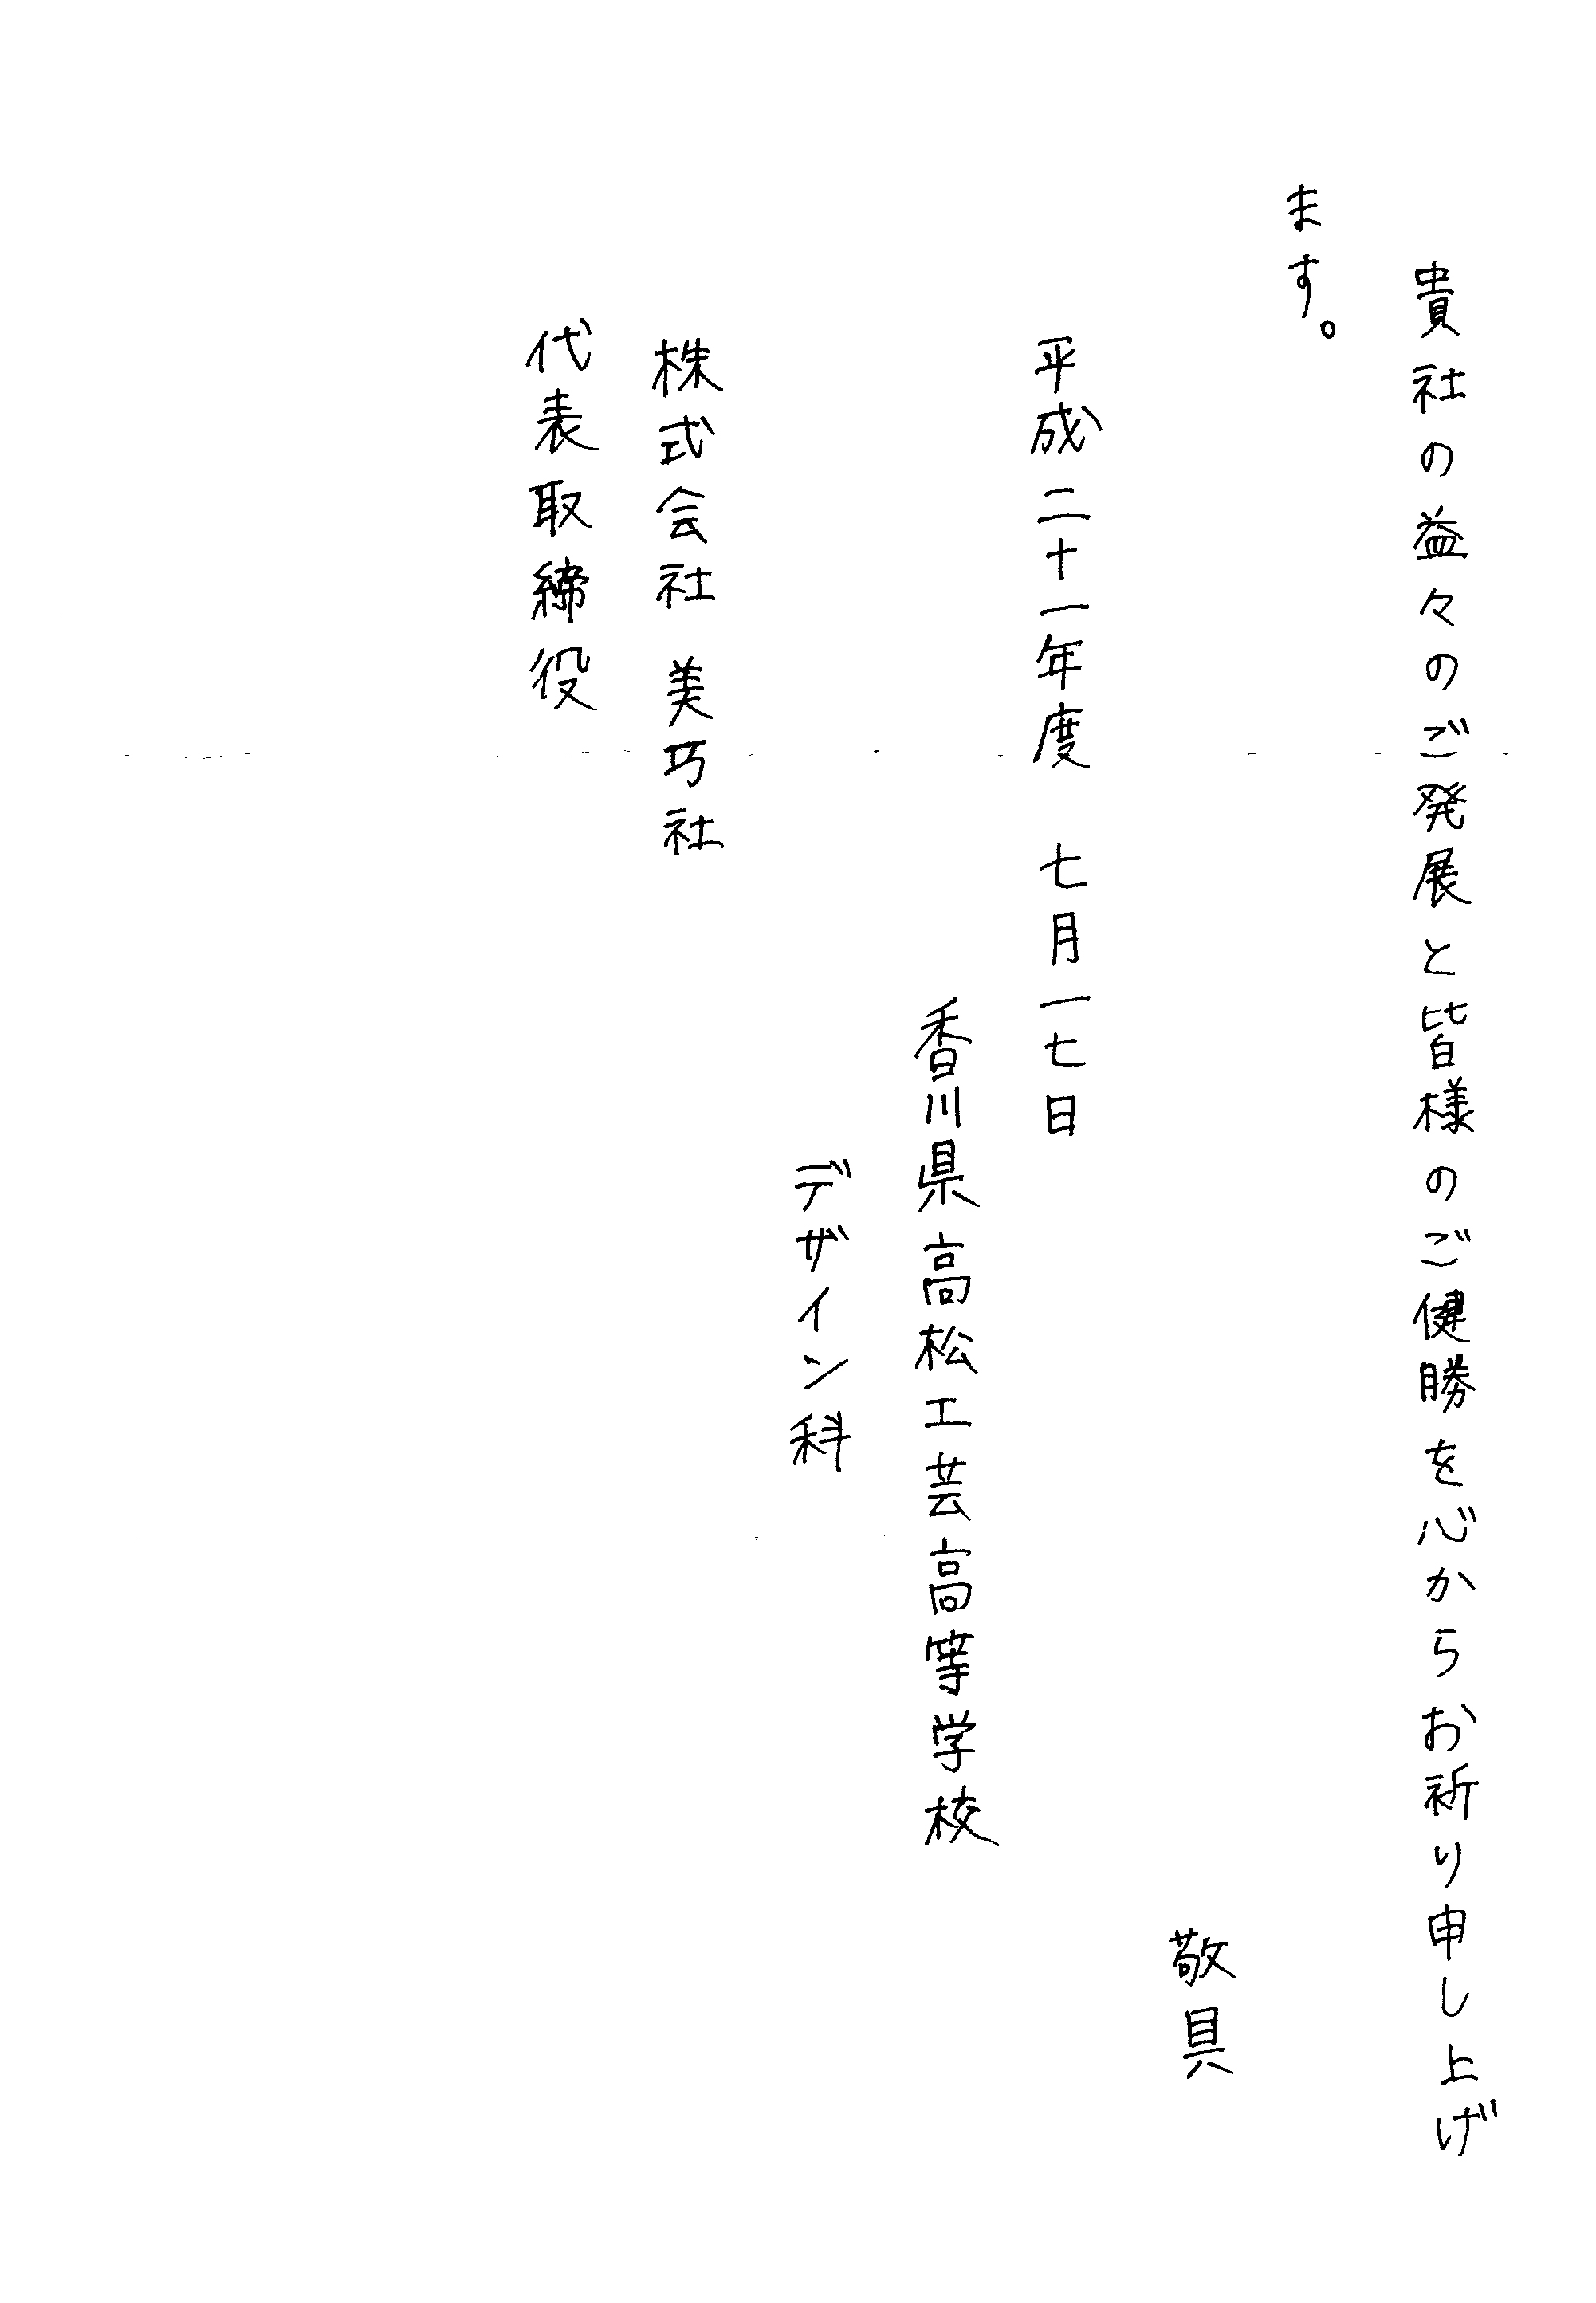 貴社の益々のご発展と皆様のご健勝を心からお祈り申し上げ
ます。
敬具
平成二十一年度　七月一七日
香川県高松工芸高等学校
デザイン科
株式会社 美巧社
代表取締役